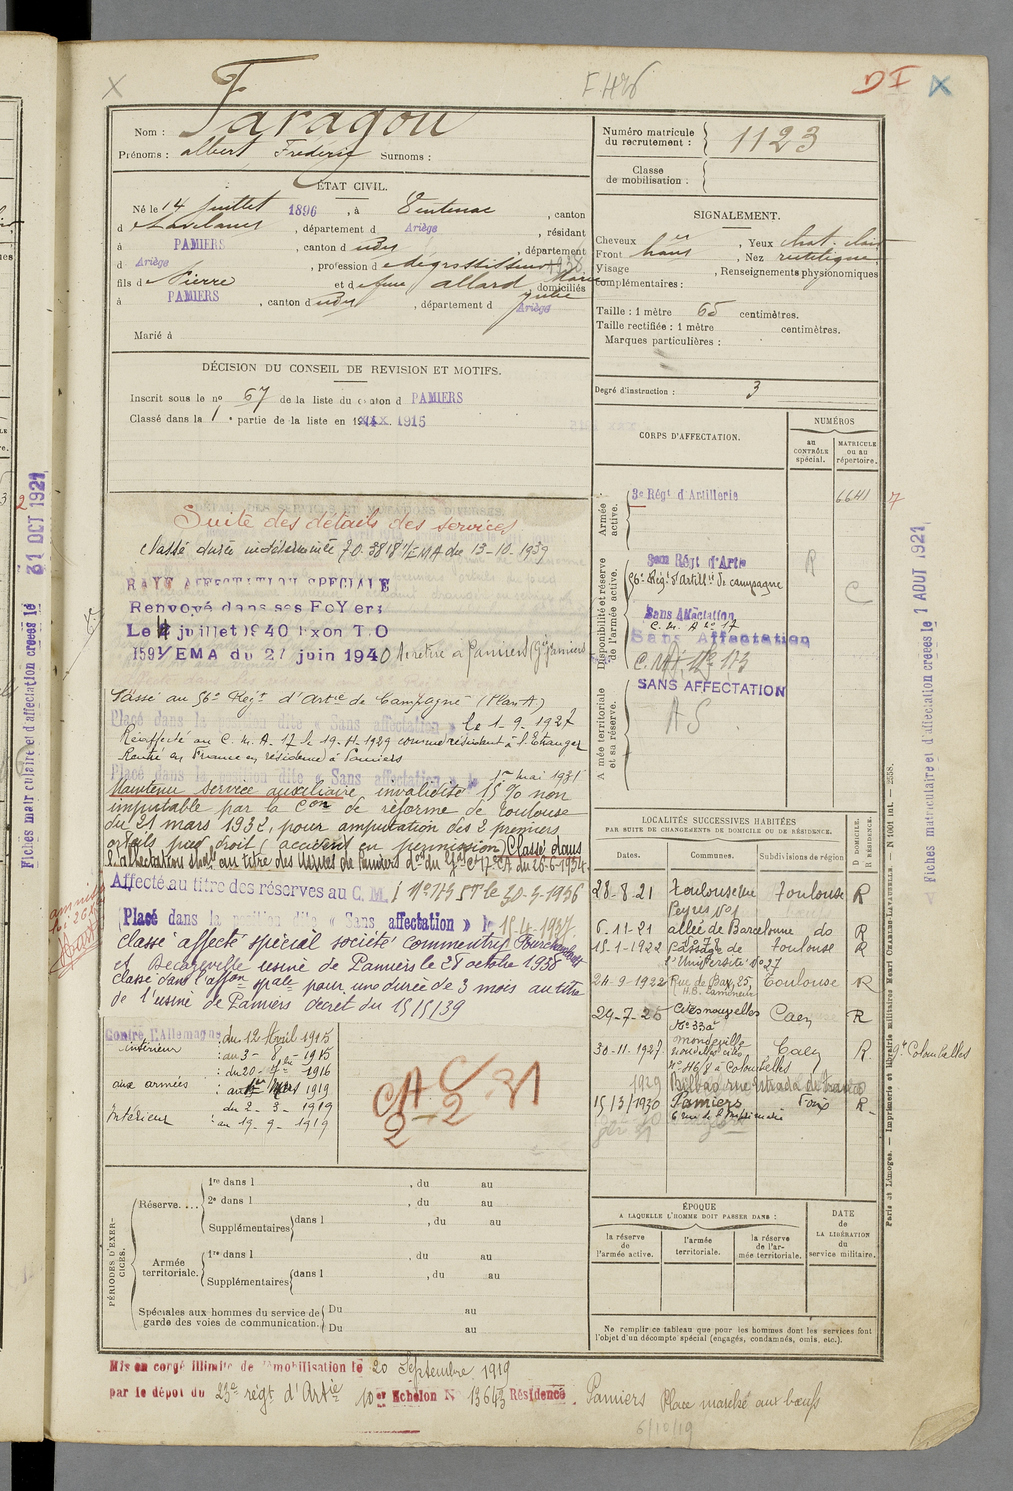 X
D I
X
Nom : Faragou
Prénoms : albert Frédéric Surnoms :
Numéro matricule du recrutement : 1123
Classe de mobilisation :
ÉTAT CIVIL.
Né le 14 Juillet 1896, à Ventenac, canton
d Lavelanet, département d Ariège, résidant
à PAMIERS, canton d udus, département
d Ariège, profession de dégrossisseur
fils de Pierre et de feue allard Marie Julie domiciliés
à PAMIERS, canton d udus, département d Ariège
Marié à
SIGNALEMENT.
Cheveux, Yeux chat. clair
Front, Nez rectiligne
Visage, Renseignements physionomiques
complémentaires :
Taille : 1 mètre 65 centimètres.
Taille rectifiée : 1 mètre centimètres.
Marques particulières :
Degré d'instruction : 3
DÉCISION DU CONSEIL DE REVISION ET MOTIFS.
Inscrit sous le n° 67 de la liste du canton d PAMIERS
Classé dans la 1e partie de la liste en 1915
Suite des détails des services
Classé durée indéterminée 70.3818 1/EMA du 13-10-1939
RAYÉ AFFECTATION SPECIALE
Renvoyé dans ses FoYers
Le 4 juillet 1940 Exon T.O
1591/EMA du 27 juin 1940 se retire à Pamiers
Passé au 56e Regt d'Artie de Campagne (Plan A)
Placé dans la position dite « Sans affectation » le 1-9-1927
Réaffecté au C. M. A. 17 le 19-11-1929 comme résidant à l'Etranger
Rentré en France en résidence à Pamiers
Placé dans la position dite « Sans affectation » le 1er mai 1931
Maintenu service auxiliaire, invalidité 15 % non
imputable par la Con de réforme de Toulouse
du 21 mars 1932, pour amputation des 2 premiers
orteils pied droit (accident en permission) Classé dans
l'affectation au titre des Usines de Pamiers
Affecté au titre des réserves au C. M. 1 N° 173 le 20-3-1936
Placé dans la position dite « Sans affectation » le 15-4-1937
Classé affecté spécial société Commentry Fourchambault
et Decazeville usine de Pamiers le 28 octobre 1938
Classé dans l'affon spale pour une durée de 3 mois au titre
de l'usine de Pamiers décret du 15/5/39
Contre l'Allemagne
intérieur : du 12 Avril 1915
: au 3-8-1915
aux armées : du 20- -1916
: au 1er Mars 1919
Intérieur du 2-3-1919
: au 19-9-1919
CORPS D'AFFECTATION.
NUMÉROS
au CONTRÔLE spécial.
MATRICULE ou au répertoire.
Armée active.
3e Régt d'Artillerie 6641
Disponibilité et réserve de l'armée active.
56e Régt d'Artillie de campagne
R
C
Sans Affectation
C. M. A N° 17
Sans Affectation
C. M. N° 173
Armée territoriale et sa réserve.
SANS AFFECTATION
A S
LOCALITÉS SUCCESSIVES HABITÉES
PAR SUITE DE CHANGEMENTS DE DOMICILE OU DE RÉSIDENCE.
Dates. Communes. Subdivisions de région
D. DOMICILE.
R. RÉSIDENCE.
28-8-21 Toulouse rue Peyres N°1 Toulouse R
6-11-21 allée de Barcelone do R
15-1-1922 Passage de l'Université N°27 Toulouse R
24-9-1922 Rue de Bay, 25, Toulouse R
29-7-26 Cités nouvelles N° 33a Caen R
30-11-1927 Mondeville nouvelles cités N° H6/8 à Colombelles Caen R
1929 Bilbao rue
15/3/1930 Pamiers 6 rue de l Foix R
PÉRIODES D'EXERCICES.
Réserve....
1re dans l , du au
2e dans l , du au
Supplémentaires dans l , du au
Armée territoriale.
1re dans l , du au
Supplémentaires dans l , du au
Spéciales aux hommes du service de garde des voies de communication.
Du au
Du au
ÉPOQUE
A LAQUELLE L'HOMME DOIT PASSER DANS :
la réserve de l'armée active.
l'armée territoriale.
la réserve de l'armée territoriale.
DATE de LA LIBÉRATION du service militaire.
Ne remplir ce tableau que pour les hommes dont les services font l'objet d'un décompte spécial (engagés, condamnés, omis, etc.).
Mis en congé illimité de démobilisation le 20 Septembre 1919
par le dépôt du 23e régt d'Artie 10e Echelon N° 13643 Résidence. Pamiers Place marché aux bœufs
6/10/19
Fiches matriculaire et d'affectation créées le 31 OCT 1921
Fiches matriculaire et d'affectation créées le 1 AOUT 1921
Paris et Limoges. — Imprimerie et librairie militaires Henri CHARLES-LAVAUZELLE. — N° 1001 int. — 2558.